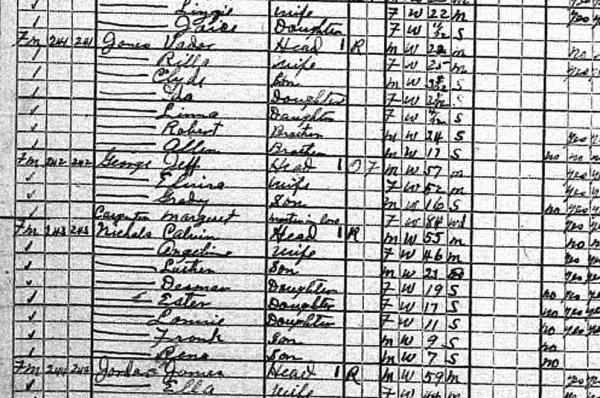 Lizzie wife F W 22 m yes yes
Daughter F W S
Fm 241 241 Jones Vader Head 1 R m W 22 m no
Rilla wife F W 25 m yes
Clyde Son m W S
Iva Daughter F W S
Linna Daughter F W S
Robert Brother m W 24 S yes
Allen Brother m W 17 S no no no
Fm 242 242 George Jeff Head 1 O F m W 57 m yes
Elvira wife F W 52 m yes
Grady Son m W 16 S no yes yes
Carpenter Margaret mother in law F W 84 wd
Fm 243 243 Nichols Calvin Head 1 R m W 55 m no no
Angeline wife F W 46 m yes
Luther Son m W 21 yes yes
Daughter F W 19 S yes yes
Ester Daughter F W 17 S no yes yes
Lonnie Daughter F W 11 S no yes yes
Frank Son m W 9 S no
Son m W 7 S no
Fm 244 Jordan James Head 1 R m W 59 m
Ella wife F W m yes